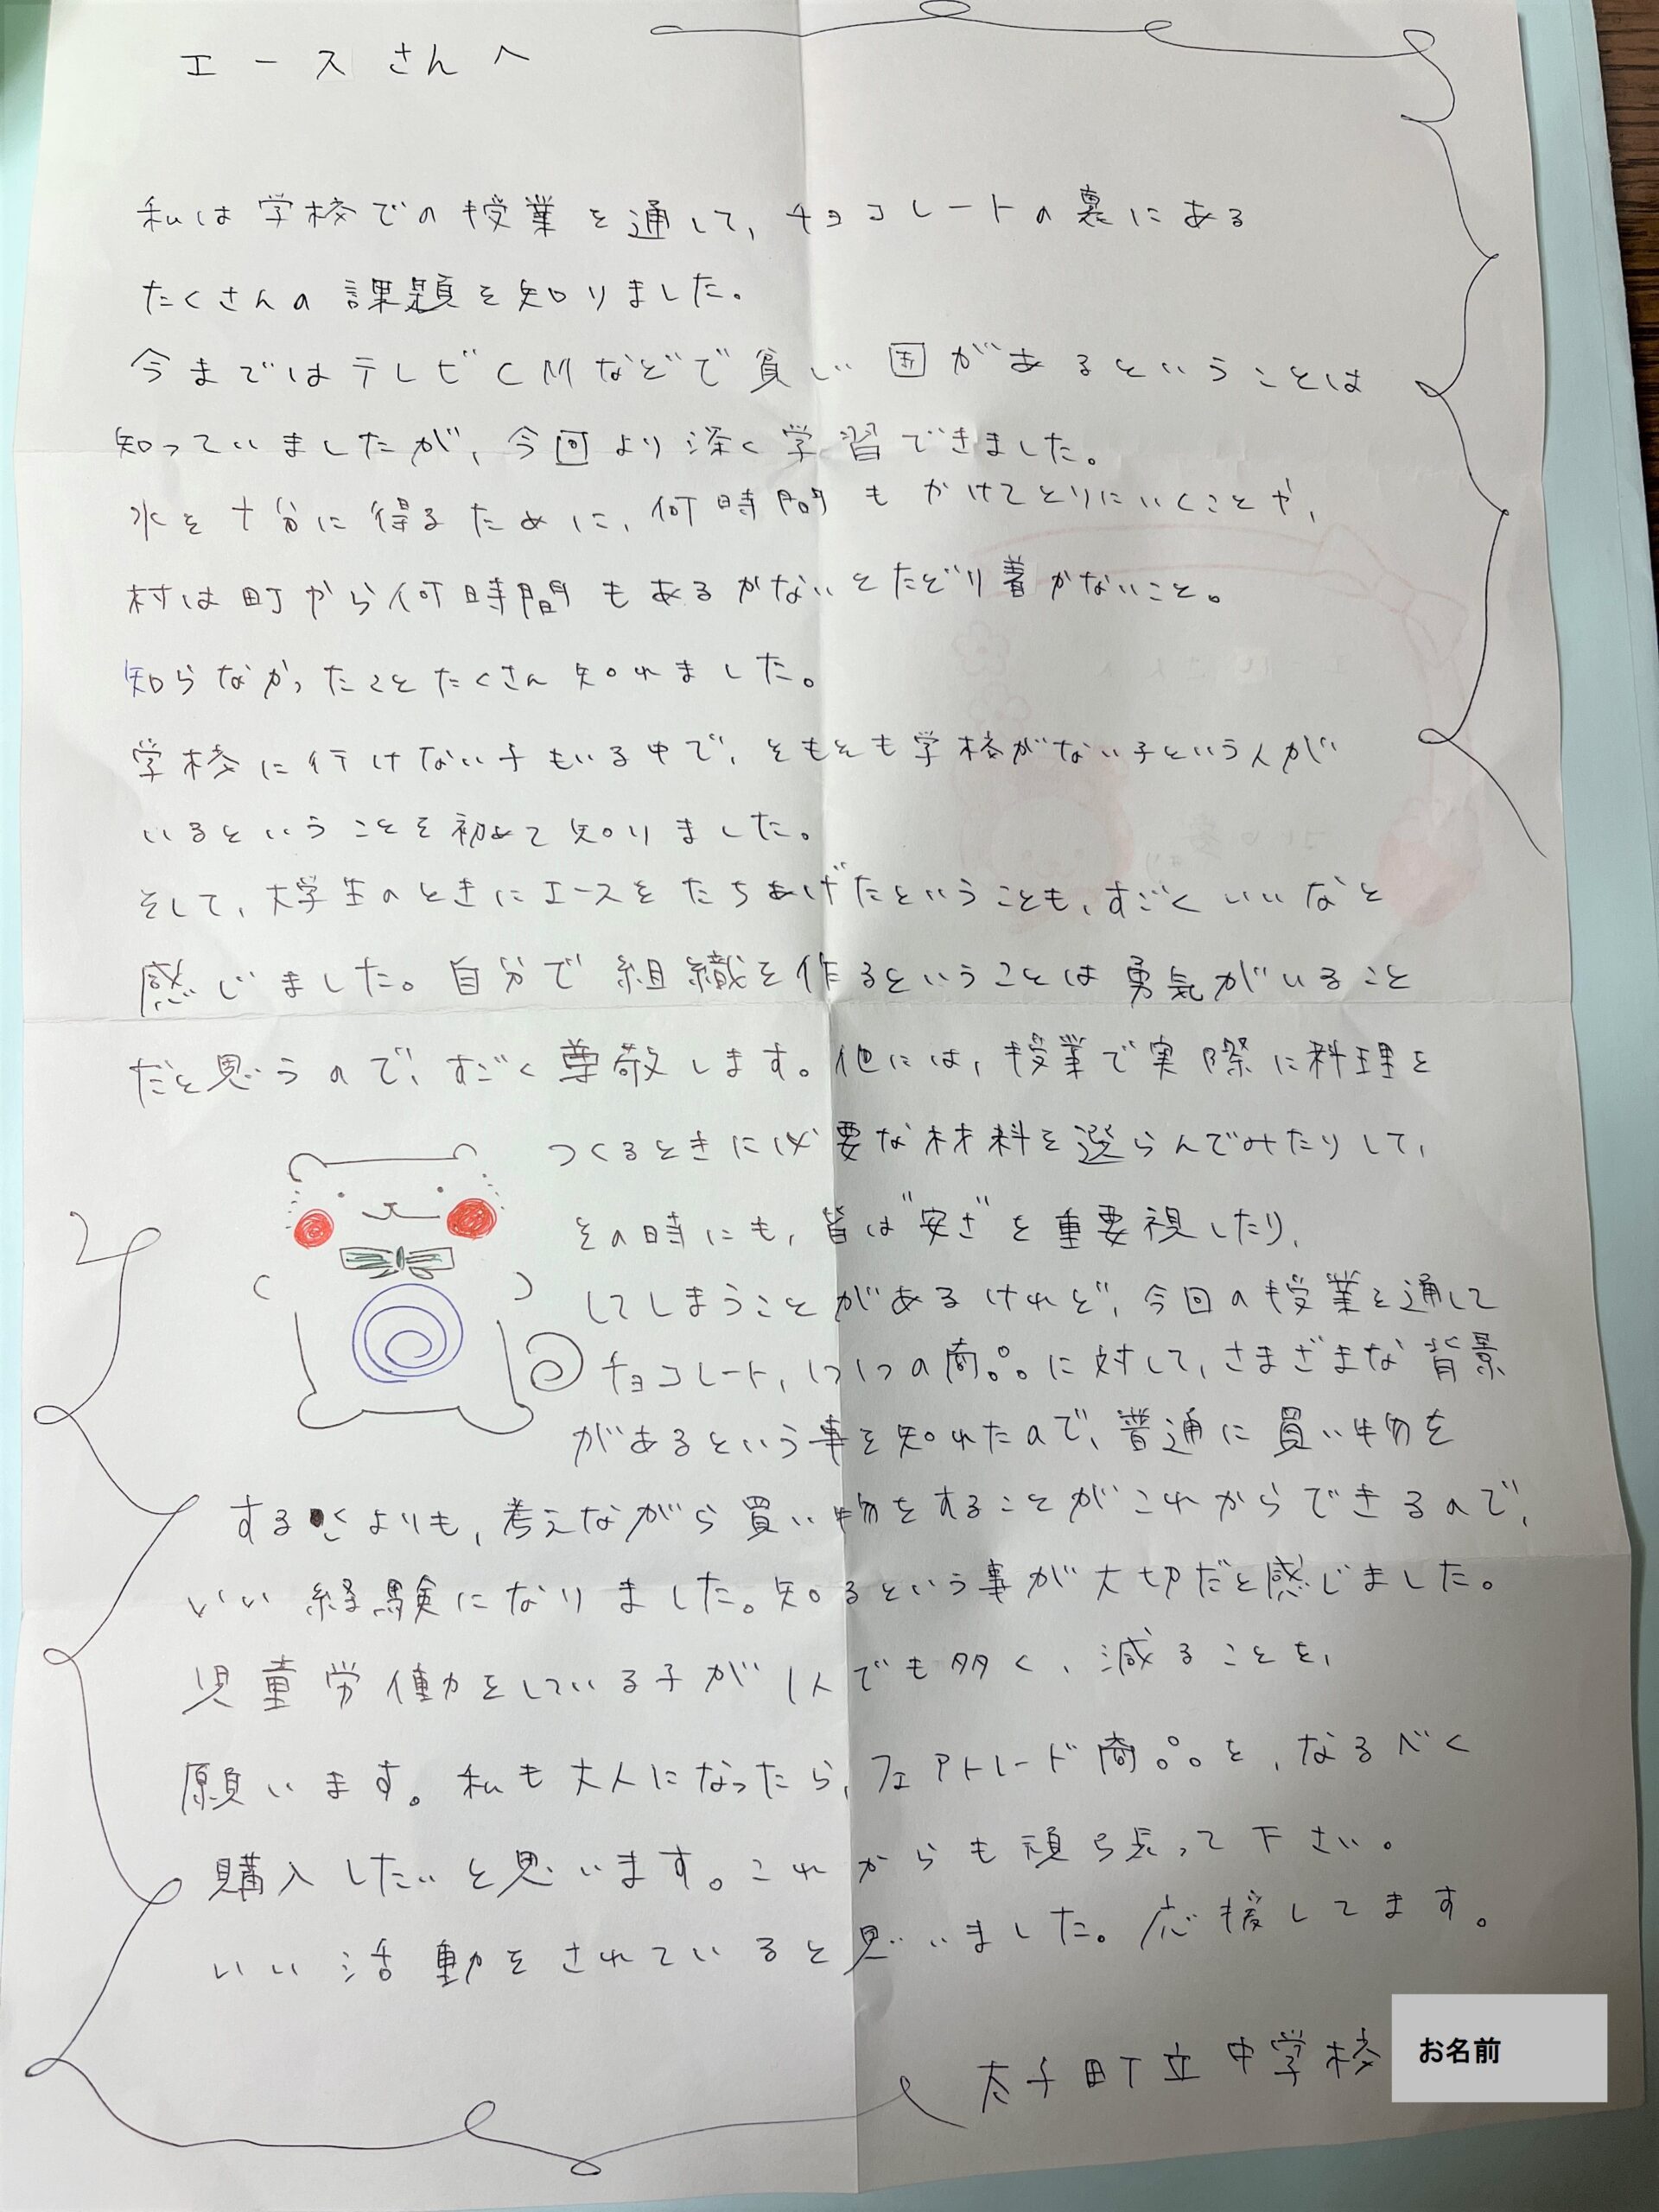 エースさんへ
私は学校での授業を通して、チョコレートの裏にある
たくさんの課題を知りました。
今まではテレビCMなどで貧しい国があるということは
知っていましたが、今回より深く学習できました。
水を十分に得るために、何時間もかけてとりにいくことや、
村は町から何時間もあるかないとたどり着かないこと。
知らなかったことたくさん知れました。
学校に行けない子もいる中で、そもそも学校がない子という人が
いるということを初めて知りました。
そして、大学生のときにエースをたちあげたということも、すごくいいなと
感じました。自分で組織を作るということは勇気がいること
だと思うので、すごく尊敬します。他には、授業で実際に料理を
つくるときに必要な材料を選らんでみたりして、
その時にも、皆は"安さ"を重要視したり、
してしまうことがあるけれど、今回の授業を通して
チョコレート、1つ1つの商品に対して、さまざまな背景
があるという事を知れたので、普通に買い物を
するくよりも、考えながら買い物をすることがこれからできるので、
いい経験になりました。知るという事が大切だと感じました。
児童労働をしている子が1人でも多く、減ることを、
願います。私も大人になったら、フェアトレード商品を、なるべく
購入したいと思います。これからも頑張って下さい。
いい活動をされていると思いました。応援してます。
太子町立中学校
お名前